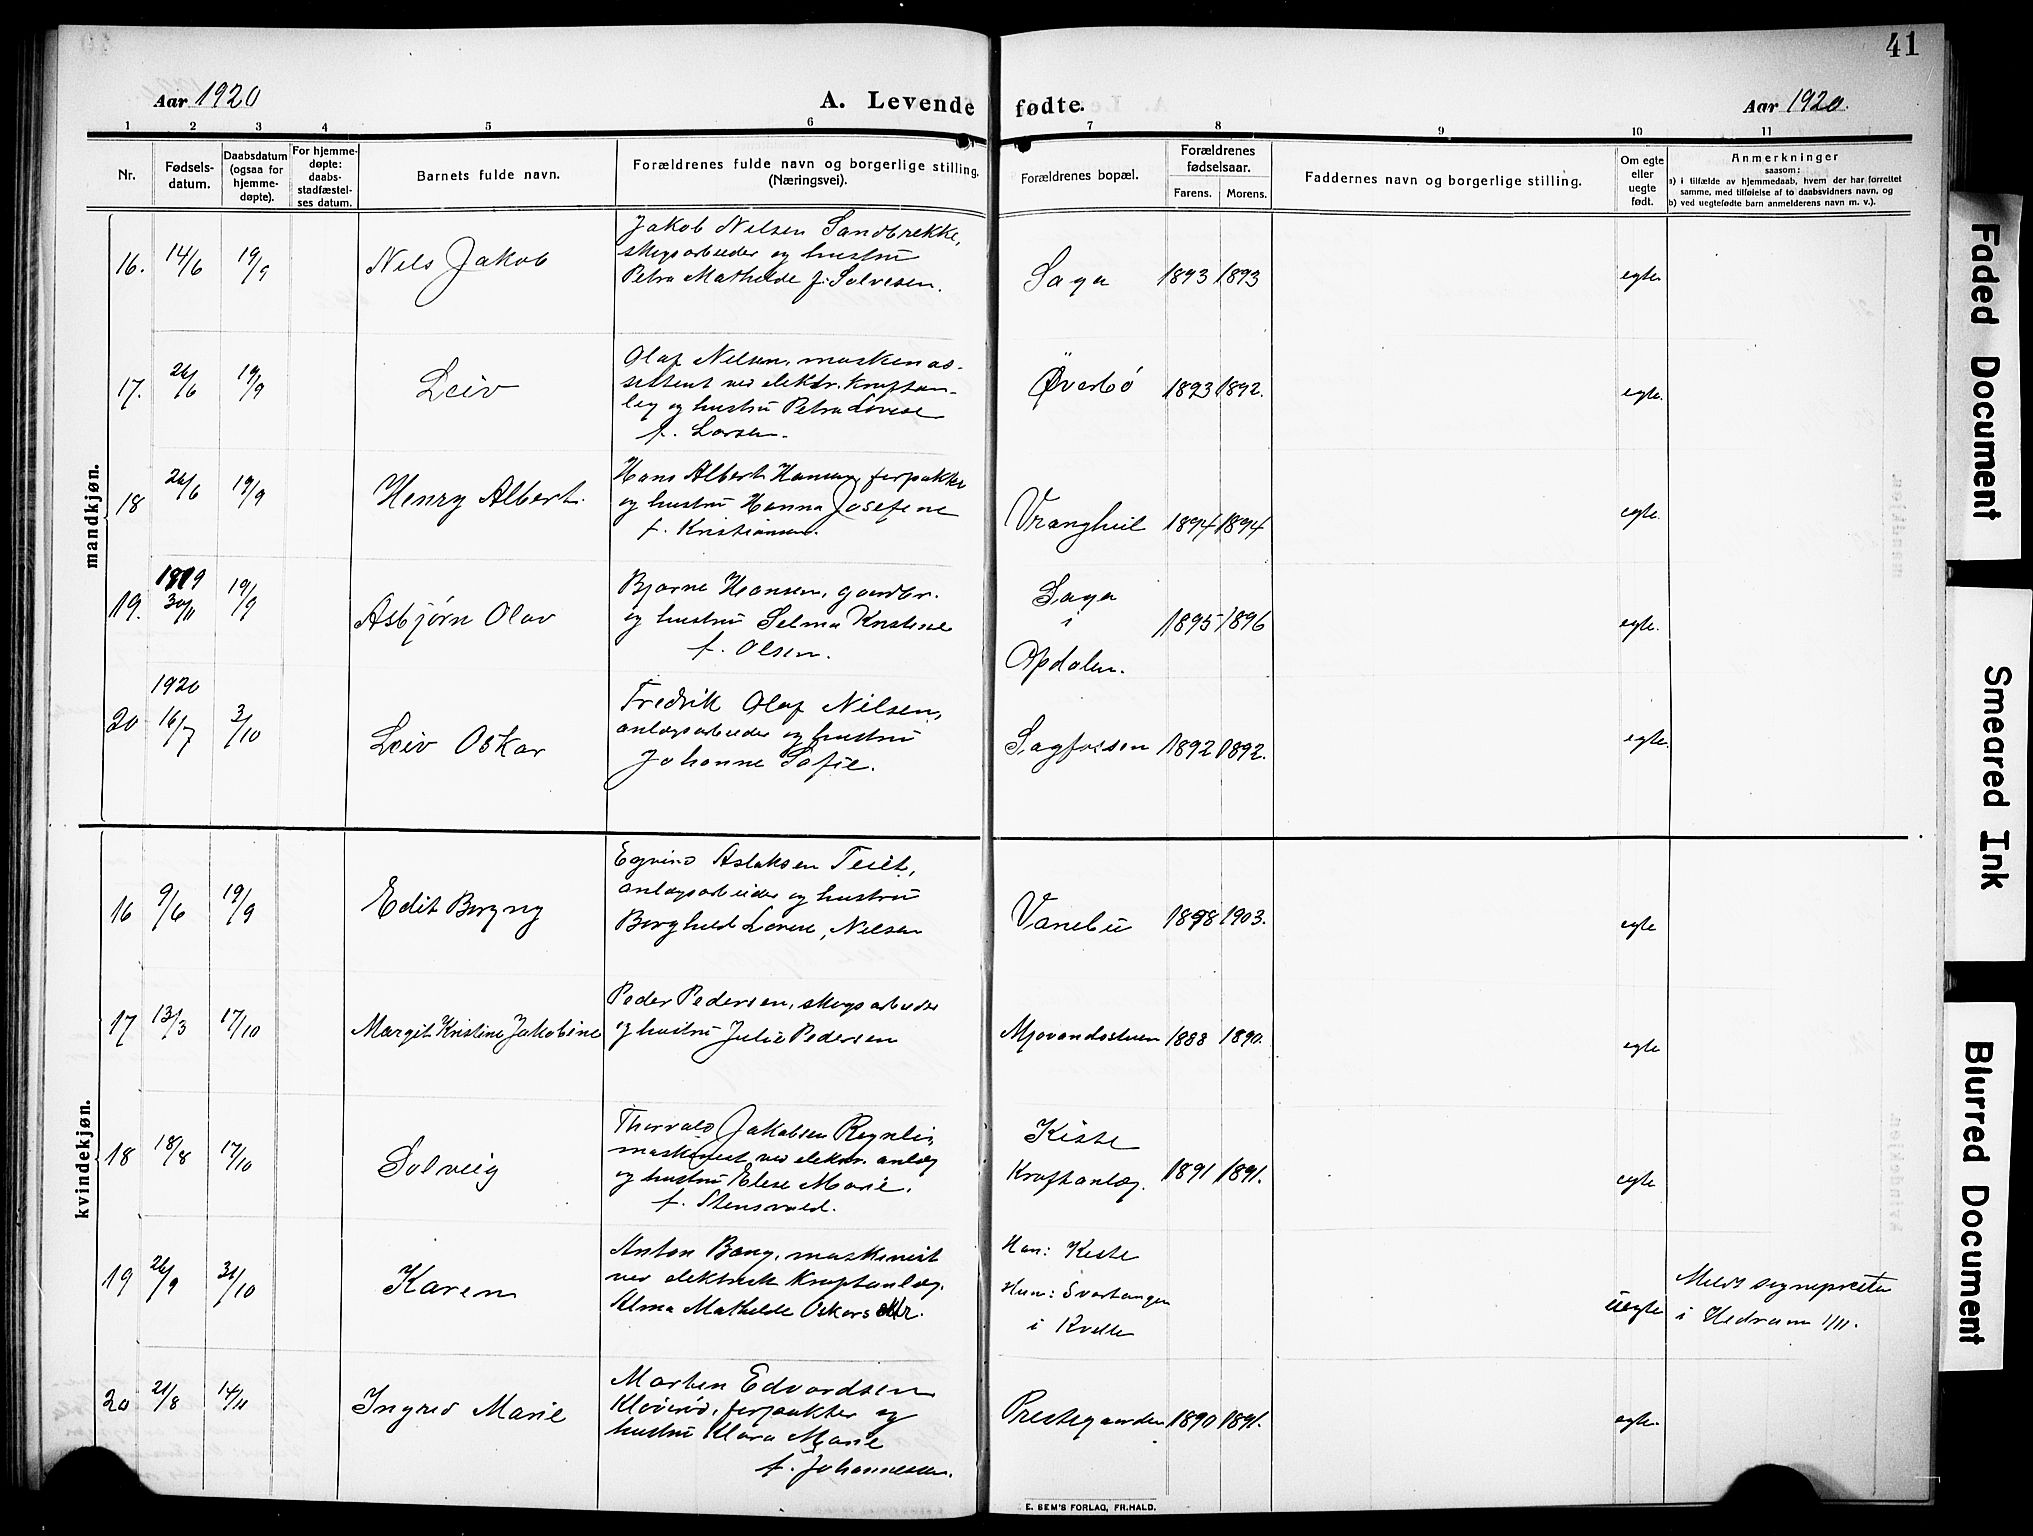 41
Aar 1920
A. Levende fødte.
Aar 1920.
1 2 3 4 5 6 7 8 9 10 11
Nr.
Fødsels-
datum.
Daabsdatum
(ogsaa for
hjemme-
døpte).
For hjemme-
døpte:
daabs-
stadfæstel-
ses datum.
Barnets fulde navn.
Forældrenes fulde navn og borgerlige stilling.
(Næringsvei).
Forældrenes bopæl.
Forældrenes
fødselsaar.
Farens. Morens.
Faddernes navn og borgerlige stilling.
Om egte
eller
uegte
født.
Anmerkninger
saasom:
a) i tilfælde av hjemmedaab, hvem der har forrettet
samme, med tilføielse af to daabsvidners navn, og
b) ved uegtefødte barn anmelderens navn m. v.).
mandkjøn.
16. 14/6 19/9 Nils Jakob
Jakob Nilsen Sandbrekke,
skogsarbeider og hustru
Petra Mathilde f. Solvesen.
Saga 1893 1893 egte.
17. 26/6 19/9 Leiv
Olaf Nilsen, maskinas-
sistent ved elektr. kraftan-
læg og hustru Petra Lovise
f. Larsen.
Øverbö 1893 1892. egte.
18 26/6 19/9 Henry Albert.
Hans Albert Hansen, forpakter
og hustru Hanna Josefine
f. Kristiansen.
Vranghul 1894 1894 egte.
19. 1919 30/11 19/9 Asbjørn Olav
Bjarne Hansen, gaardbr.
og hustru Selma Kristine
f. Olsen.
Saga
i
Opdalen.
1895 1896 egte.
20 1920 16/7 3/10 Leiv Oskar
Fredrik Olaf Nilsen,
anlægsarbeider og hustru
Johanne Sofie.
Sagfossen 1892 1892. egte.
kvindekjøn.
16 9/6 19/9 Edit Borgny
Eyvind Aslaksen Teiet,
anlægsarbeider og hustru
Borghild Lovise, Nilsen
Vanebu 1898 1903. egte
17 13/3 17/10 Margit Kristine Jakobine
Peder Pedersen, skogsarbeider
og hustru Julie Pedersen
Mjovandsstuen 1888 1890. egte
18 18/8 17/10 Solveig
Thorvald Jakobsen Røynli,
maskinist ved elektr. anlæg
og hustru Elise Marie.
f. Stensvold.
Kiste
Kraftanlæg. 1891 1891. egte
19 26/9 31/10 Karen
Anton Bang, maskinist
ved elektrisk kraftanlæg.
Alma Mathilde Oskarsdtr.
Han: Kiste
Hun: Svartangen
i Kvelle
uegte
Meldt sognepresten
i Hedrum 1/11.
20 21/8 14/11 Ingrid Marie
Marten Edvardsen
Kløverød, forpakter og
hustru Klara Marie
f. Johannessen.
Prestegaarden 1890 1891. egte.
E. SEM'S FORLAG, FR.HALD.
Faded Document
Smeared Ink
Blurred Document